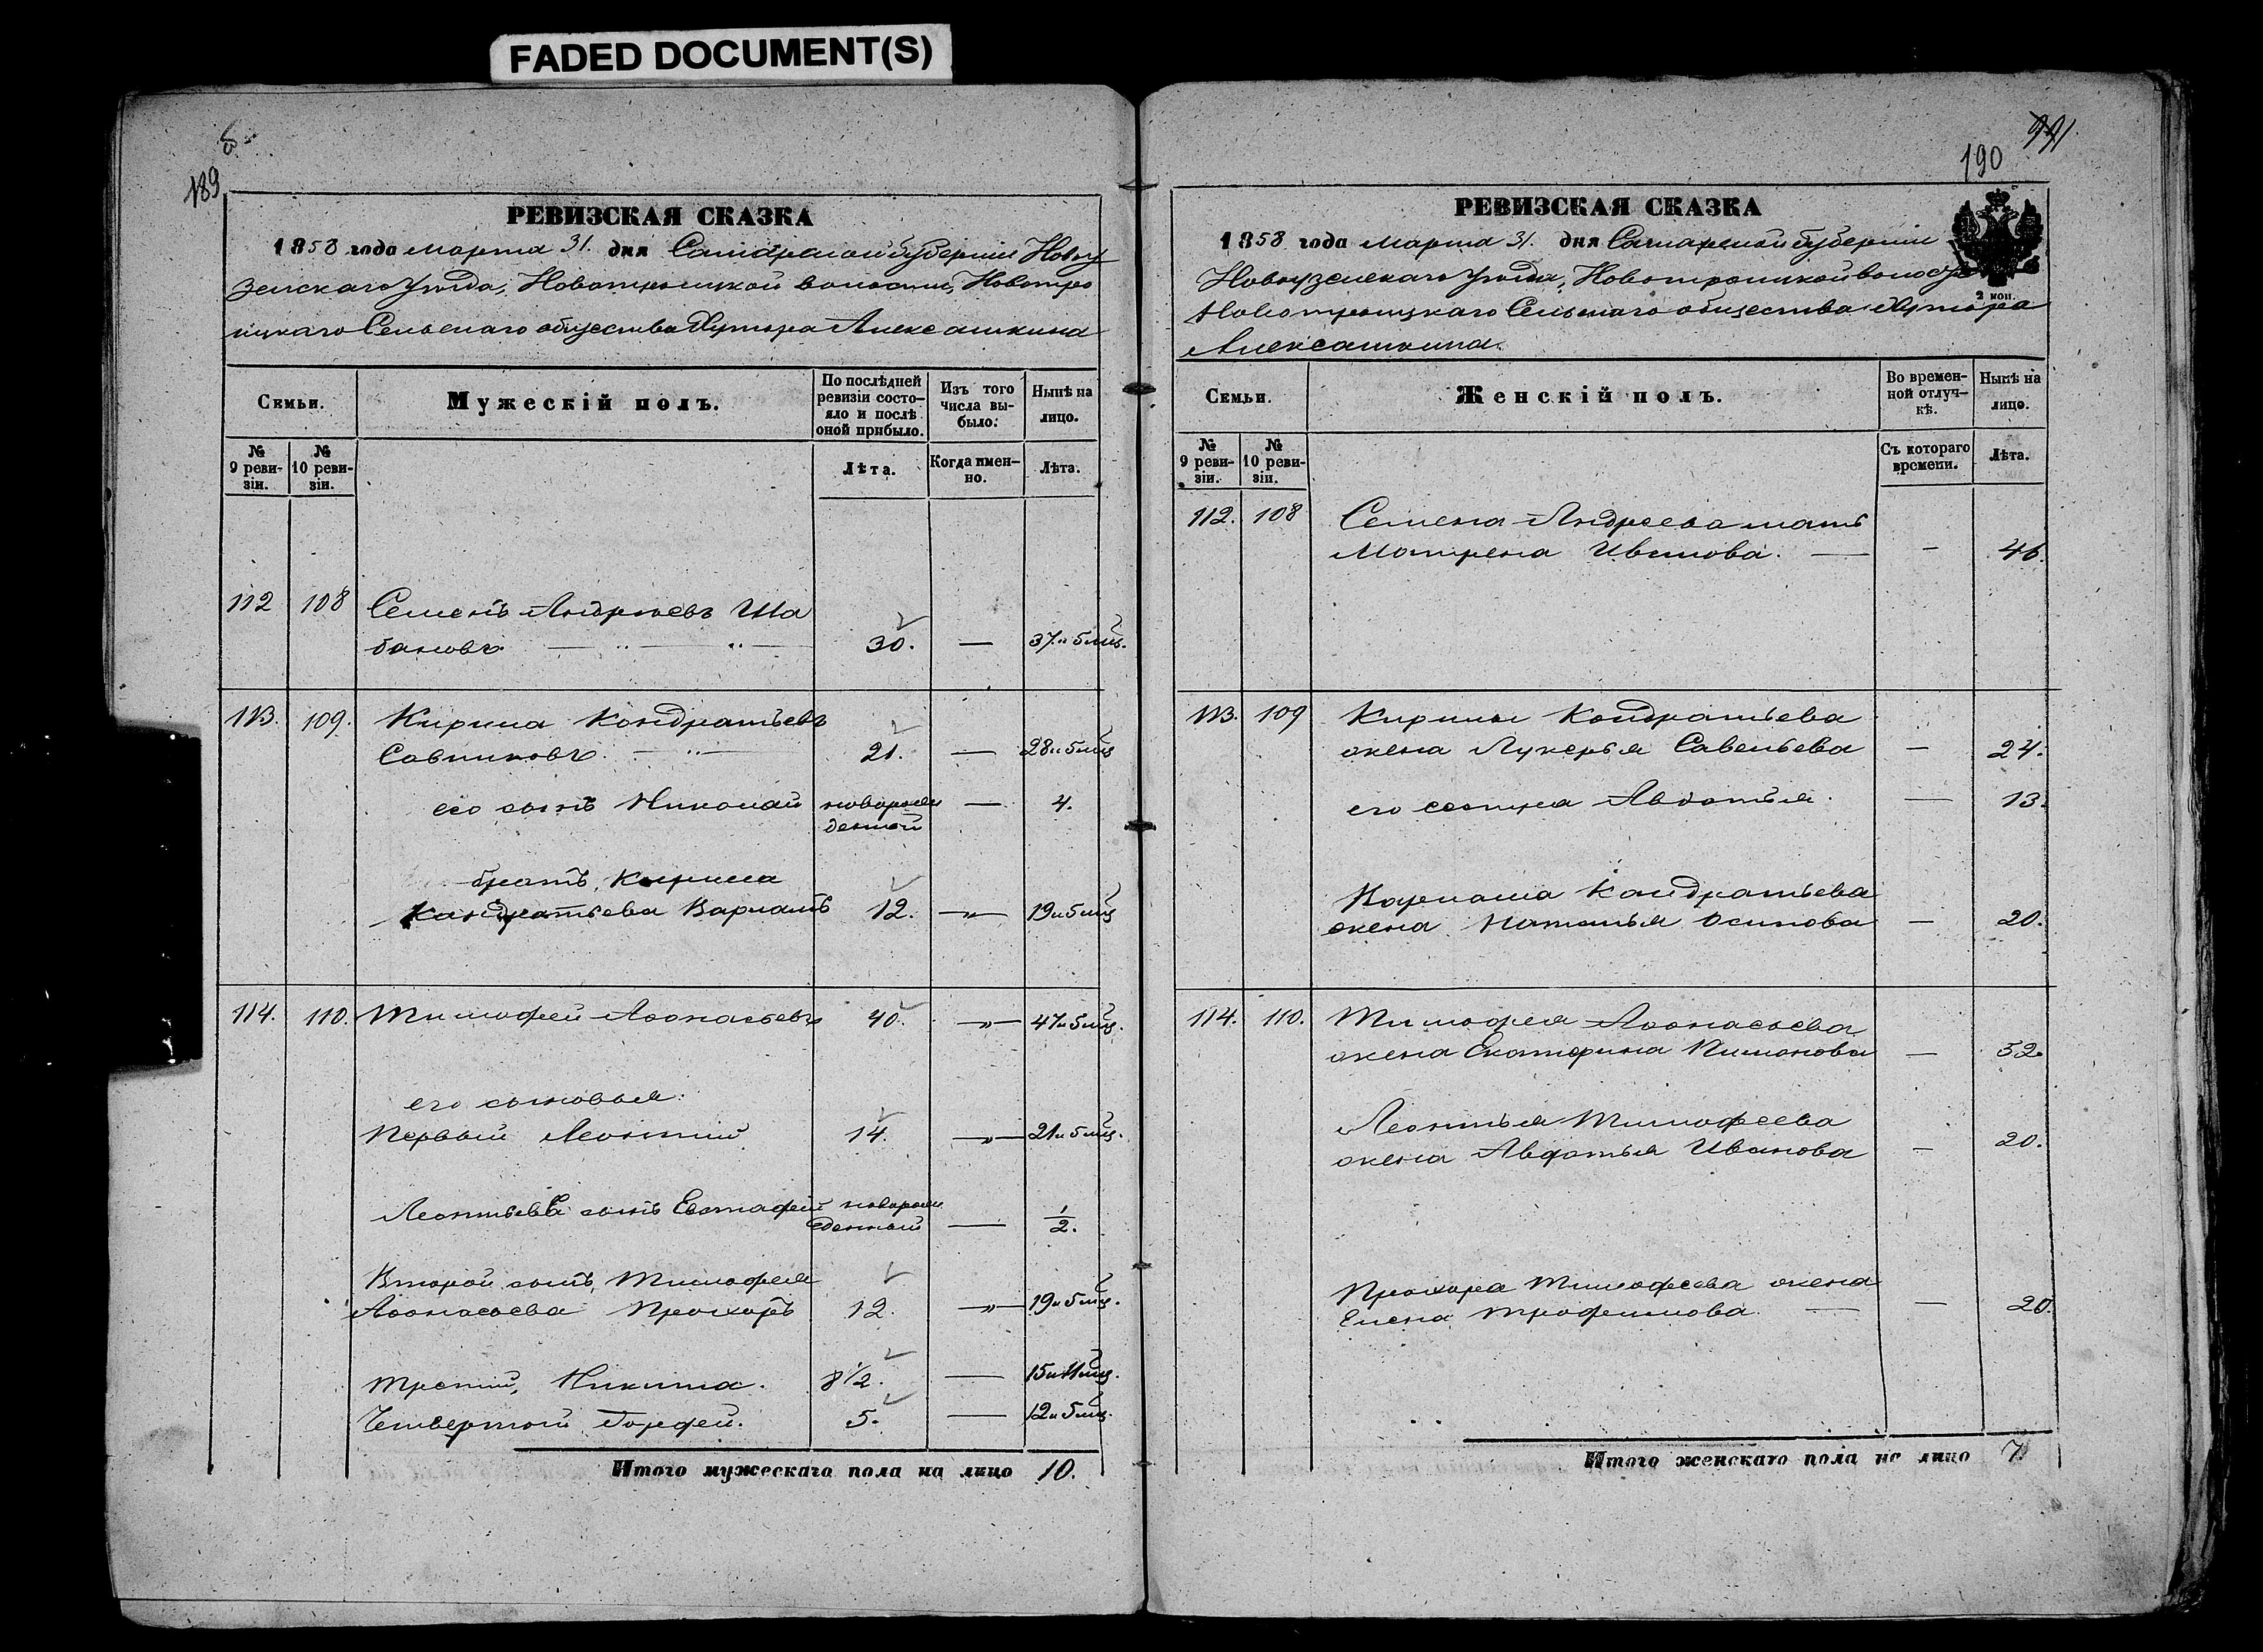 FADED DOCUMENT(S)
189
РЕВИЗСКАЯ СКАЗКА
1858 года марта 31. дня Самарской губернии Новоу
зенскаго уезда, Новотроицкой волости, Новотро
ицкаго Сельскаго общества Хутора Алексашкина
Семьи.
Мужескій полъ.
По послѣдней ревизіи состояло и послѣ оной прибыло.
Изъ того числа выбыло.
Нынѣ на лицо.
№ 9 ревизіи.
№ 10 ревизіи.
Лѣта.
Когда именно.
Лѣта.
112 108 Семенъ Андреевъ Ша
бановъ 30. — 37 и 5 мц.
113. 109. Кирила Кондратьевъ
Савинковъ. 21. — 28 и 5 мц
его сынъ Николай новорож — 4.
денной
братъ, Кирила
Кандратьева Варламъ 12. —„— 19 и 5 мц
114. 110. Тимофей Афонасьевъ 40. —„— 47 и 5 мц.
его сыновья:
Первый Леонтий 14. —„— 21 и 5 мц.
Леонтьева сынъ Евстафей новорож
денный — 1/2.
Второй сынъ, Тимофея
Афонасьева Прохоръ 12. —„— 19 и 5 мц.
Третий, Никита. 8 1/2. — 15 и 11 мц.
Четвертой Дорфей. 5. — 12 и 5 мц.
Итого мужескаго пола на лицо 10.
190
РЕВИЗСКАЯ СКАЗКА
1858 года марта 31. дня Самарской губернии
Новоузенскаго уезда, Новотроицкой волости
Новотроицкаго Сельскаго общества Хутора
Алексашкина.
2 коп.
Семьи.
Женскій полъ.
Во временной отлучкѣ.
Нынѣ на лицо.
№ 9 ревизіи.
№ 10 ревизіи.
Съ котораго времени.
Лѣта.
112. 108 Семена Андреева мать
Матрена Иванова. — — 46.
113. 109 Кирилы Кондратьева
жена Лукерья Савельева — 24.
его сестра Авдотья. — 13.
Варлама Кандратьева
жена Наталья Осипова — 20.
114. 110. Тимофея Афонасьева
жена Екатерина Пименова — 52.
Леонтья Тимофеева
жена Авдотья Иванова — 20.
Прохора Тимофеева жена
Елена Трофимова. — — 20.
Итого женскаго пола на лицо 7